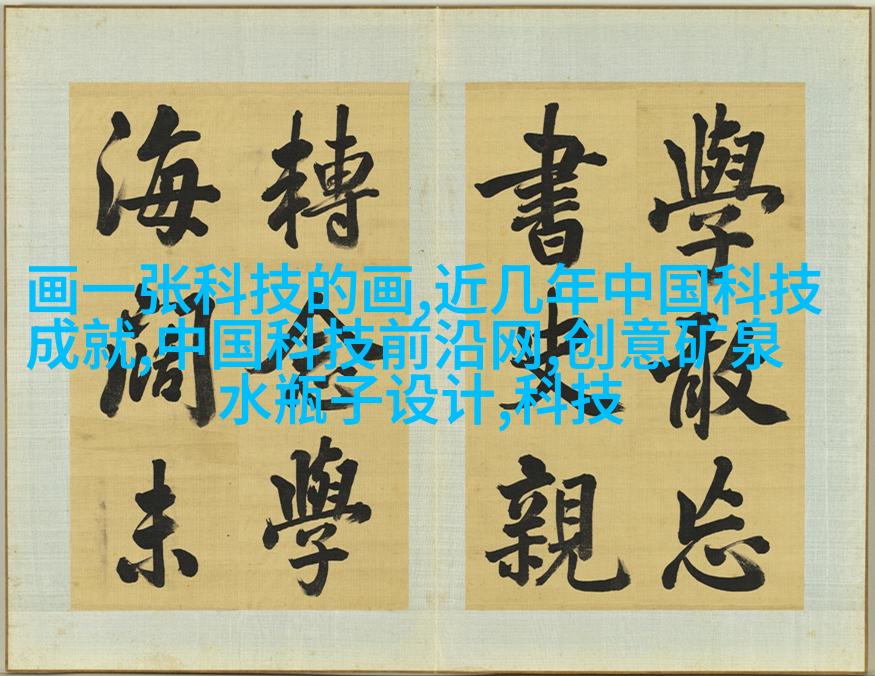 画一张科技的画,近几年中国科技
成就,中国科技前沿网,创意矿泉
水瓶子设计,科技
學忘
書親
轉學
海闊未